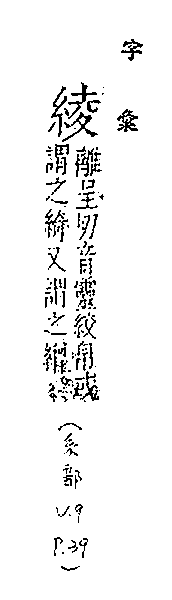 字彙
綾
離呈切音靈紋帛或
謂之綺又謂之
(糸部
V.9
P.39)